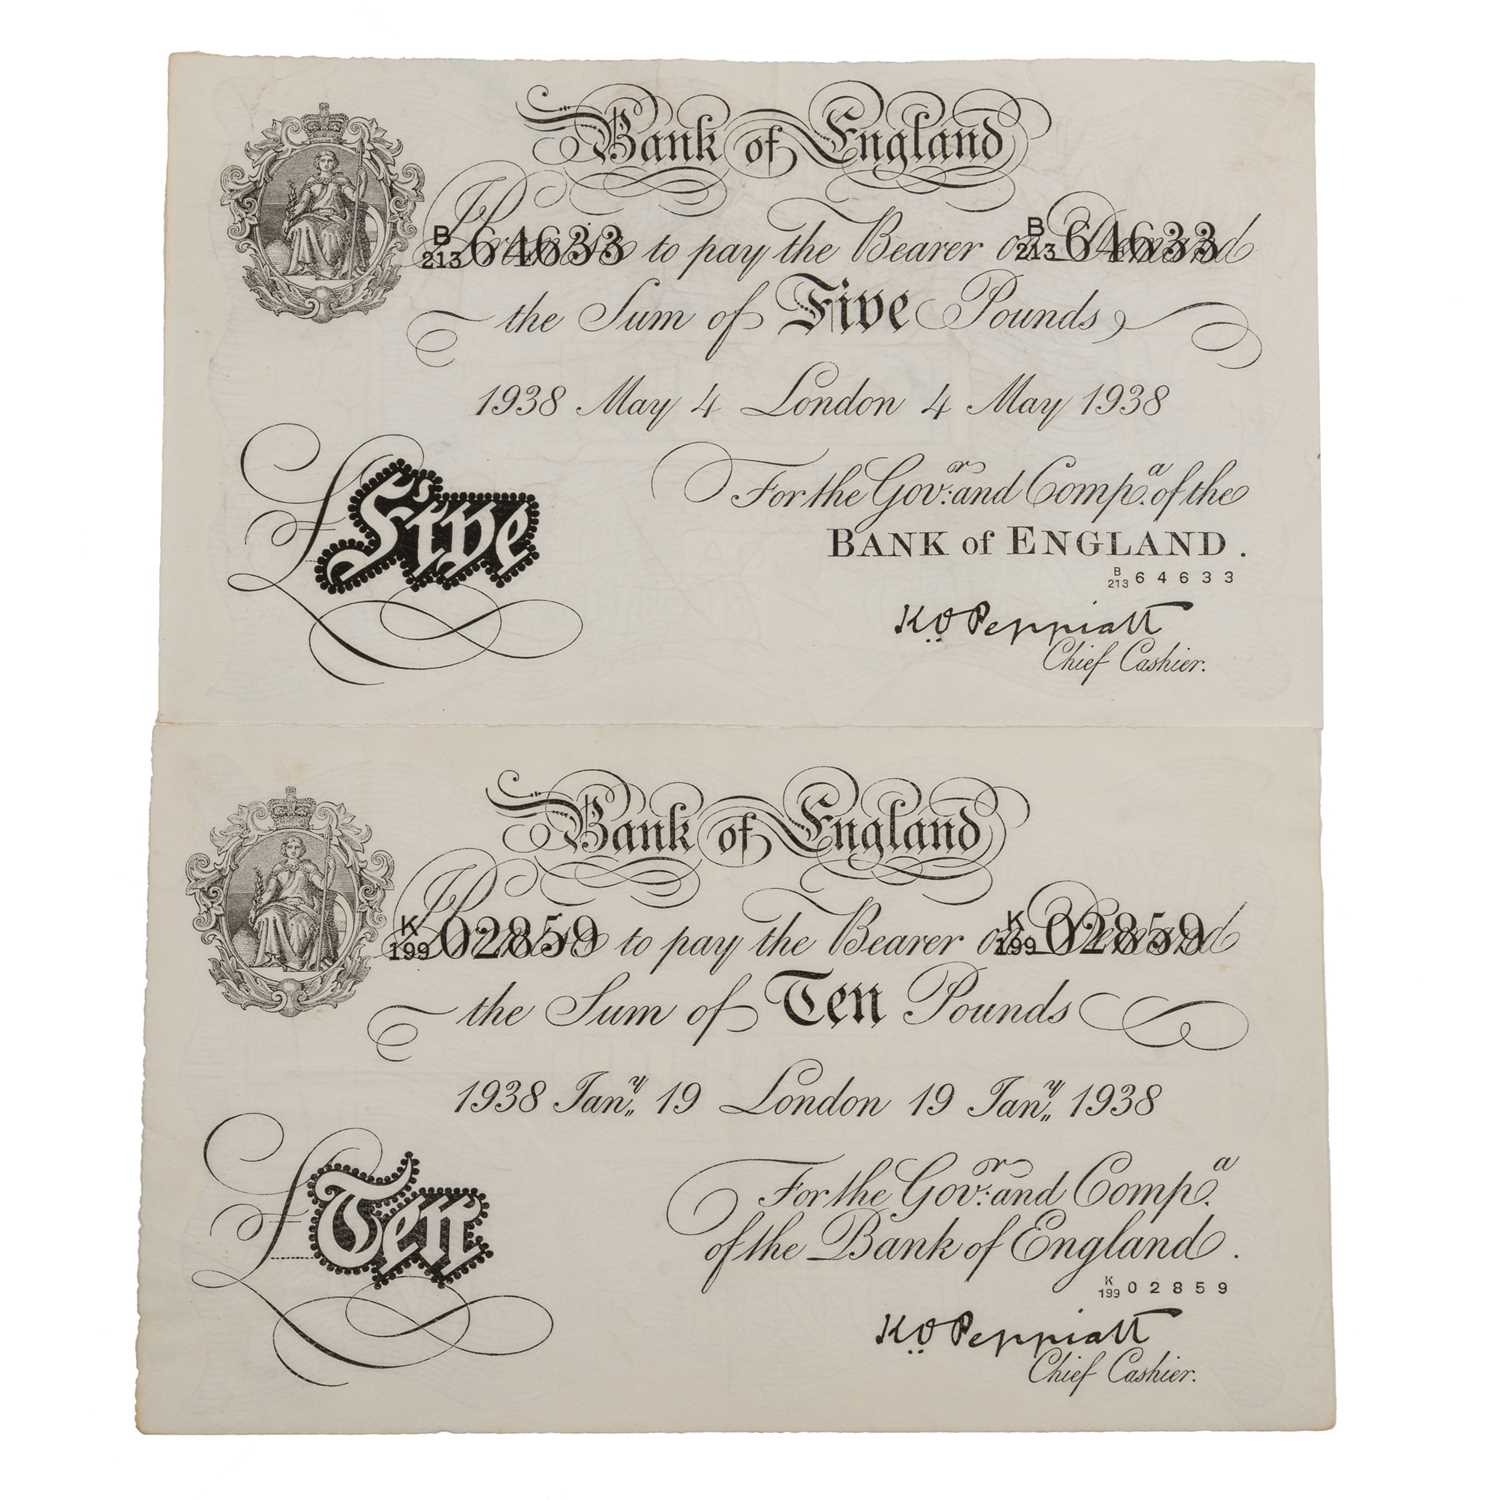 Bank of England
B/213 64633 B/213 64633
I Promise to pay the Bearer on Demand
the Sum of Five Pounds
1938 May 4 London 4 May 1938
For the Govr. and Compa. of the
BANK of ENGLAND.
B/213 64633
£Five
K.O. Peppiatt
Chief Cashier.
Bank of England
K/199 02859 K/199 02859
I Promise to pay the Bearer on Demand
the Sum of Ten Pounds
1938 Jany. 19 London 19 Jany. 1938
For the Govr. and Compa.
of the Bank of England.
K/199 02859
£Ten
K.O. Peppiatt
Chief Cashier.